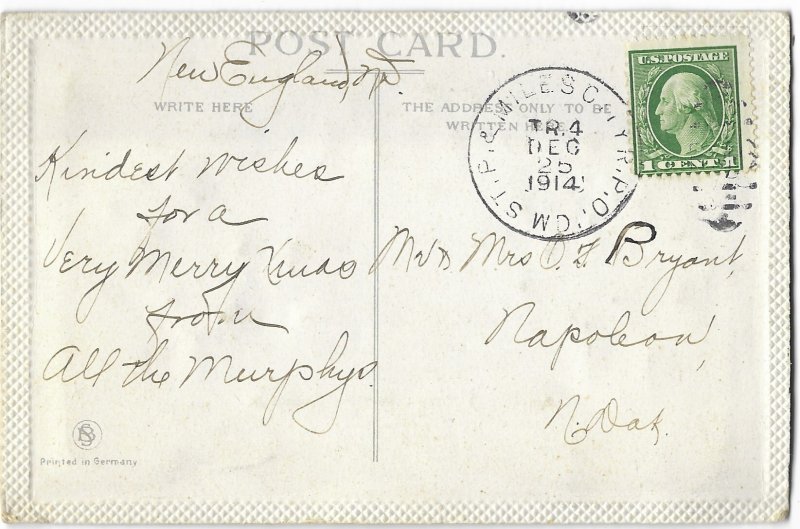 POST CARD.
New England, ND.
WRITE HERE
THE ADDRESS ONLY TO BE
WRITTEN HERE
Kindest wishes
for a
Very Merry Xmas
from
All the Murphys.
M St. P. & MILES CITY R.P.O.
TR. 4
DEC
25
1914
U.S. POSTAGE
1 CENT 1
Mr & Mrs O F Bryant,
Napoleon,
N. Dak.
BS
Printed in Germany